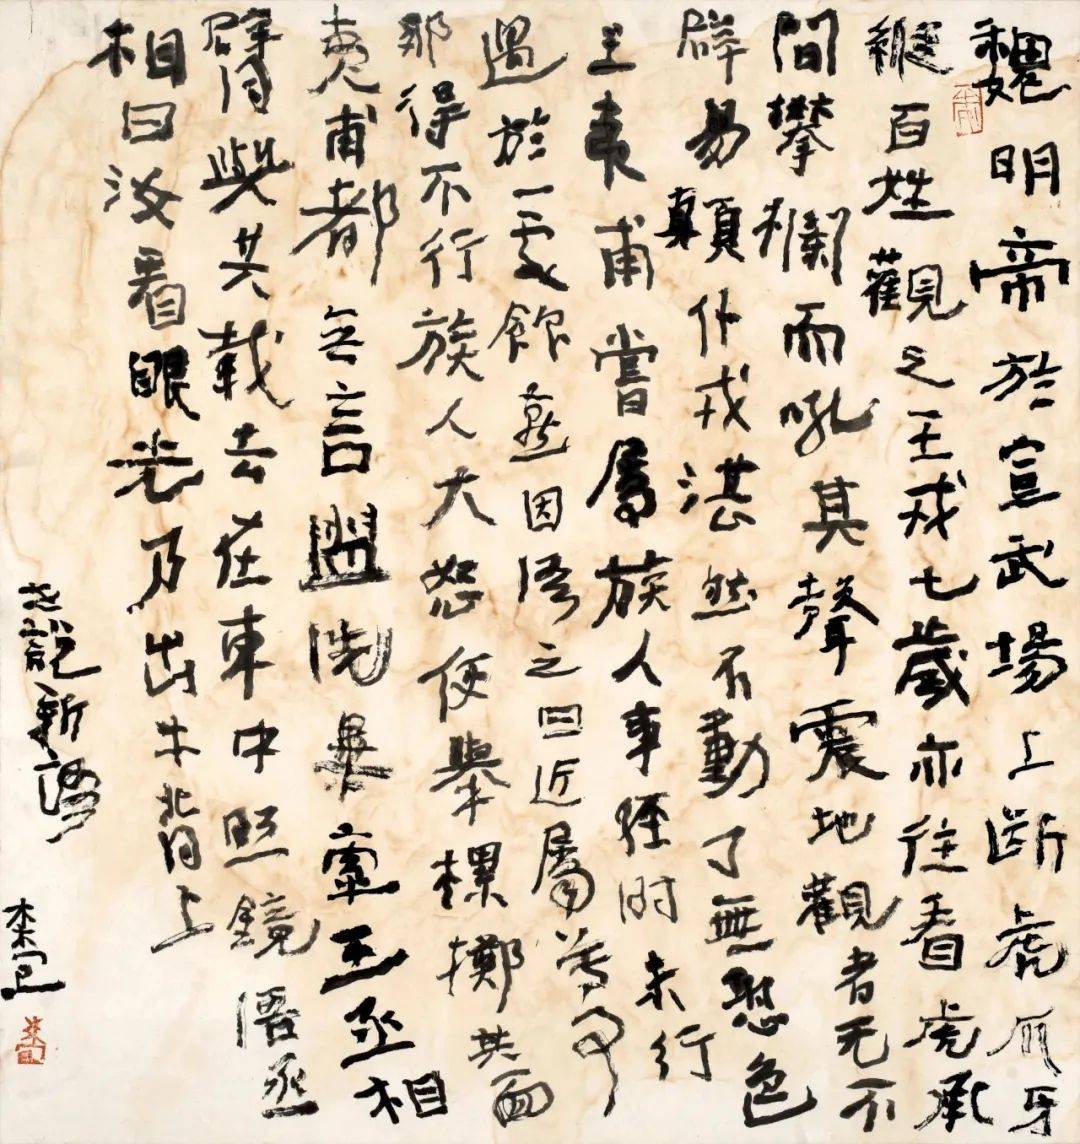 魏明帝於宣武場上斷虎爪牙
縱百姓觀之王戎七歲亦往看虎承
間攀欄而吼其聲震地觀者无不
辟易顛仆戎湛然不動了無恐色
王夷甫嘗屬族人事經時未行
遇於一處飲燕因語之曰近屬尊事
那得不行族人大怒便舉樏擲其面
夷甫都无言盥洗畢牽王丞相
臂與共載去在車中照鏡語丞
相曰汝看眼光乃出牛背上
世說新語